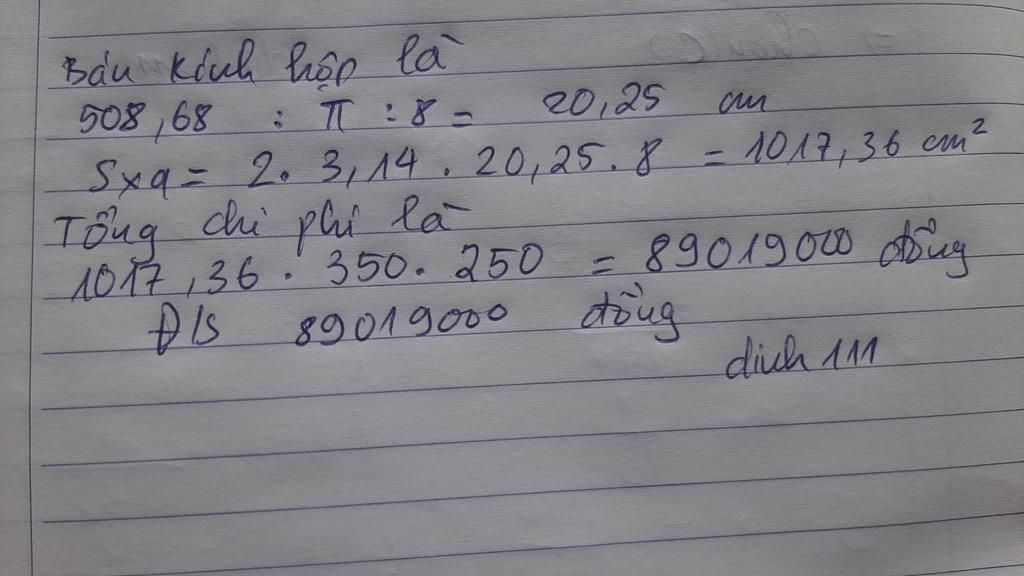 Bán kính hộp là
508,68 : π : 8 = 20,25 cm
Sxq = 2. 3,14 . 20,25. 8 = 1017,36 cm²
Tổng chi phí là
1017,36 . 350. 250 = 89019000 đồng
Đ/S 89019000 đồng
dinh 111